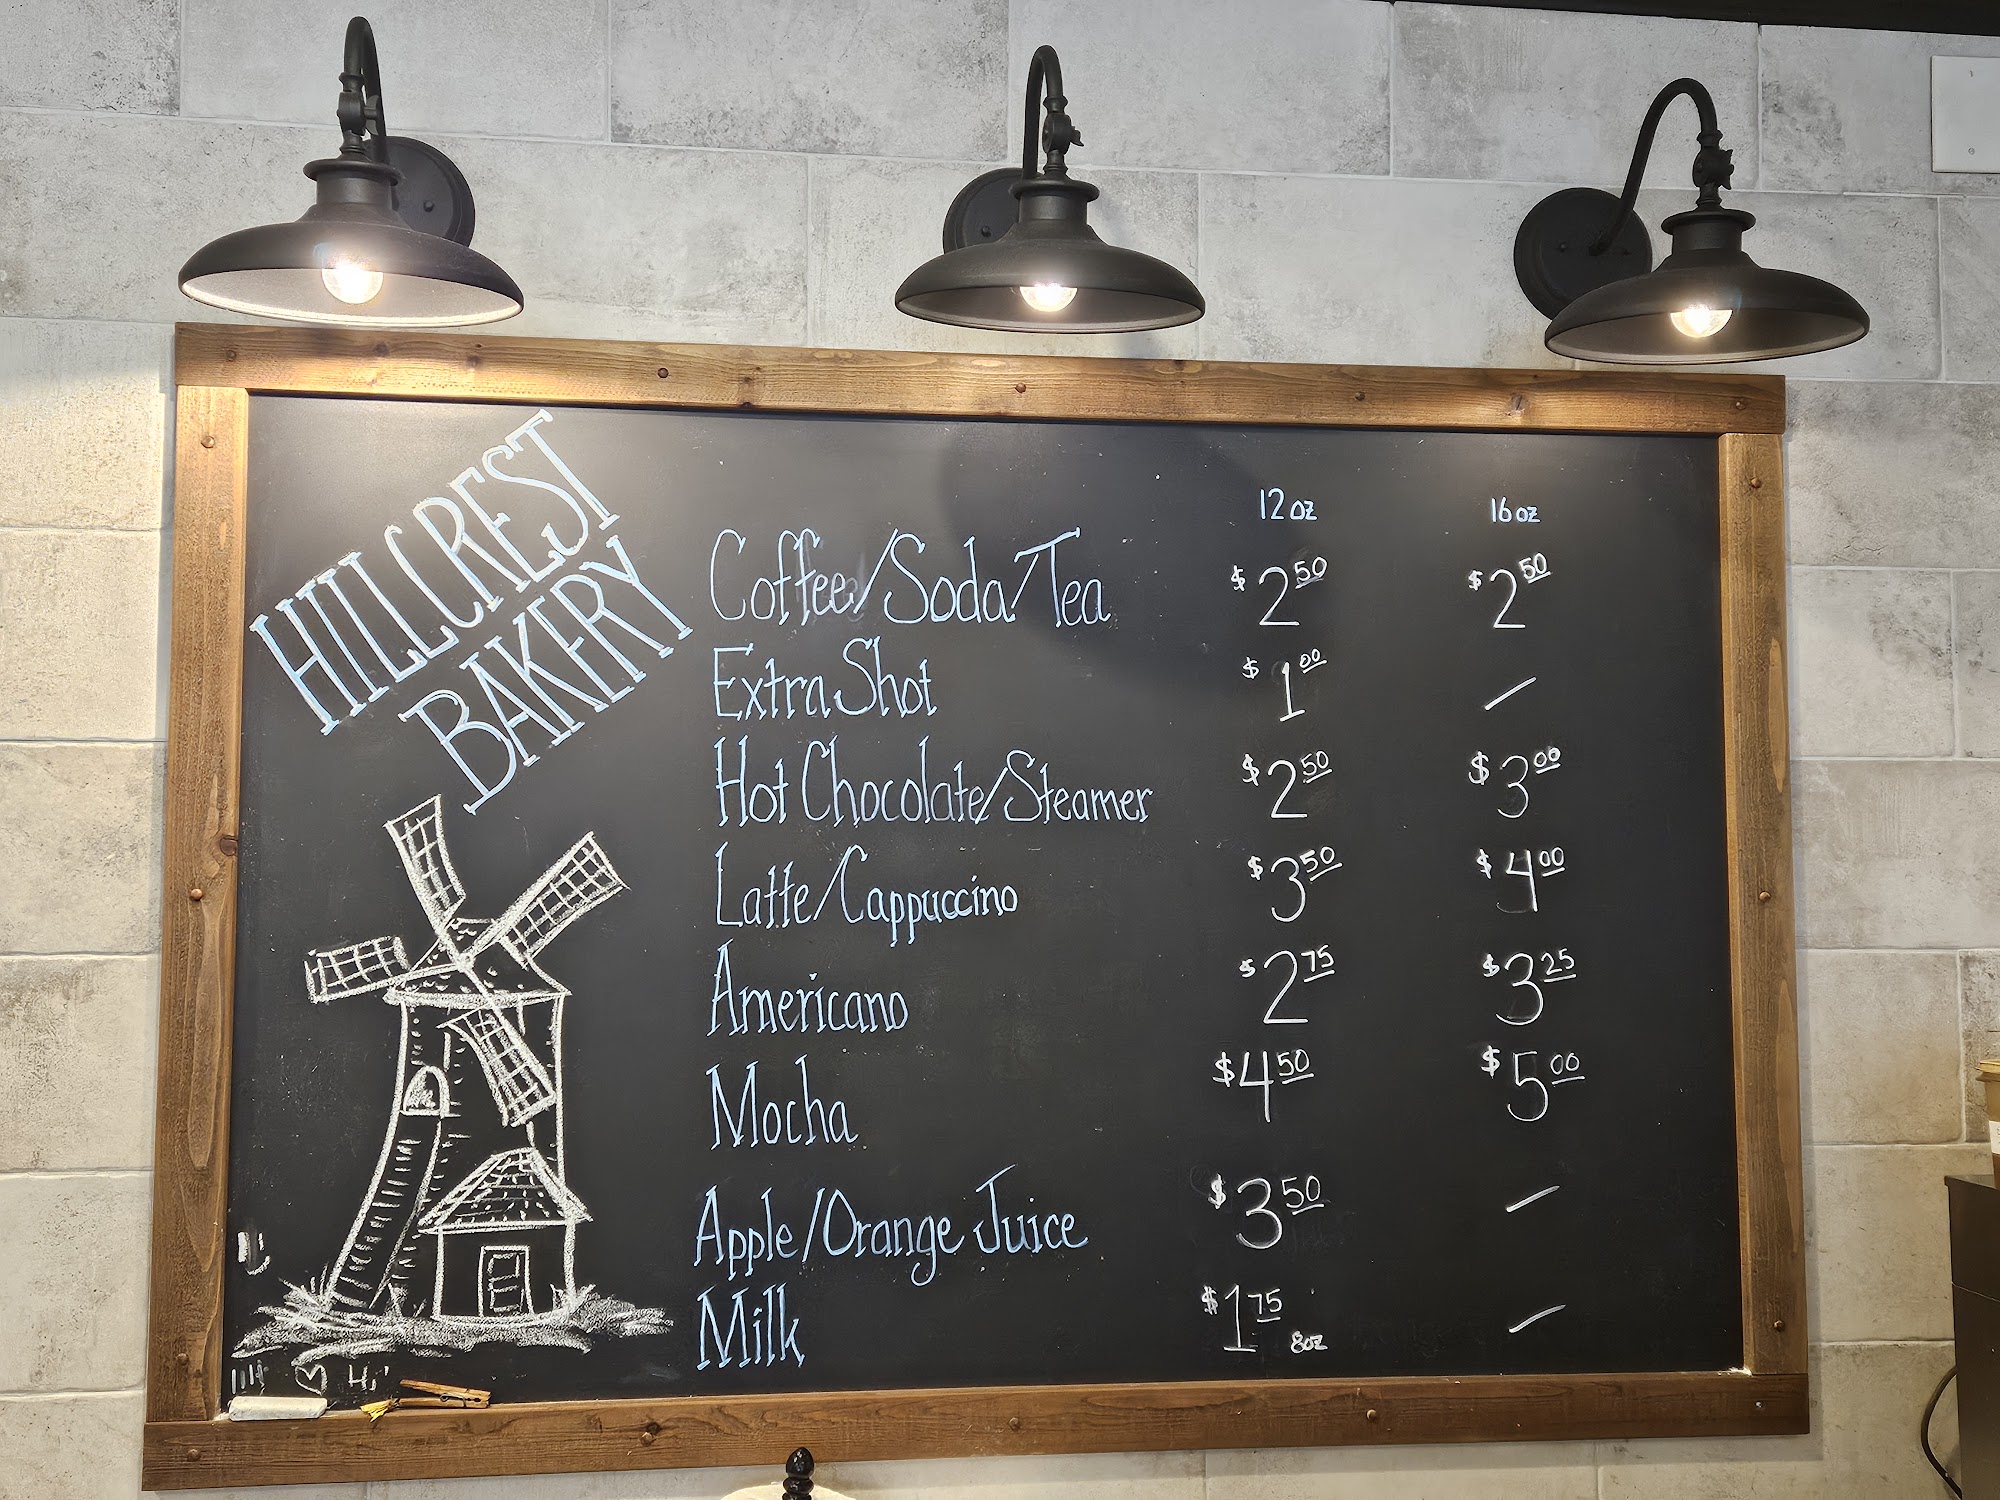 HILLCREST
BAKERY
12 oz 16 oz
Coffee/Soda/Tea $2.50 $2.50
Extra Shot $1.00 —
Hot Chocolate/Steamer $2.50 $3.00
Latte/Cappuccino $3.50 $4.00
Americano $2.75 $3.25
Mocha $4.50 $5.00
Apple/Orange Juice $3.50 —
Milk $1.75 8oz —
Hi